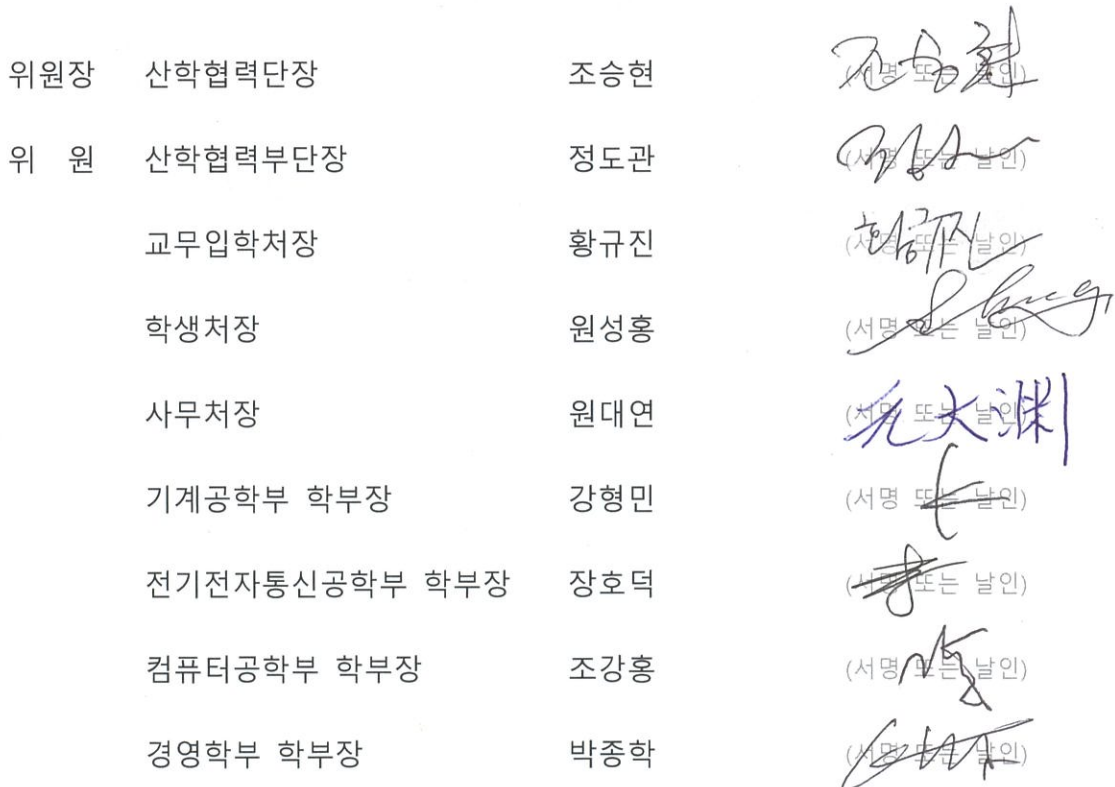 위원장 산학협력단장 조승현 (서명 또는 날인)
위 원 산학협력부단장 정도관 (서명 또는 날인)
교무입학처장 황규진 (서명 또는 날인) 황규진
학생처장 원성홍 (서명 또는 날인)
사무처장 원대연 (서명 또는 날인) 元大淵
기계공학부 학부장 강형민 (서명 또는 날인)
전기전자통신공학부 학부장 장호덕 (서명 또는 날인)
컴퓨터공학부 학부장 조강홍 (서명 또는 날인)
경영학부 학부장 박종학 (서명 또는 날인)